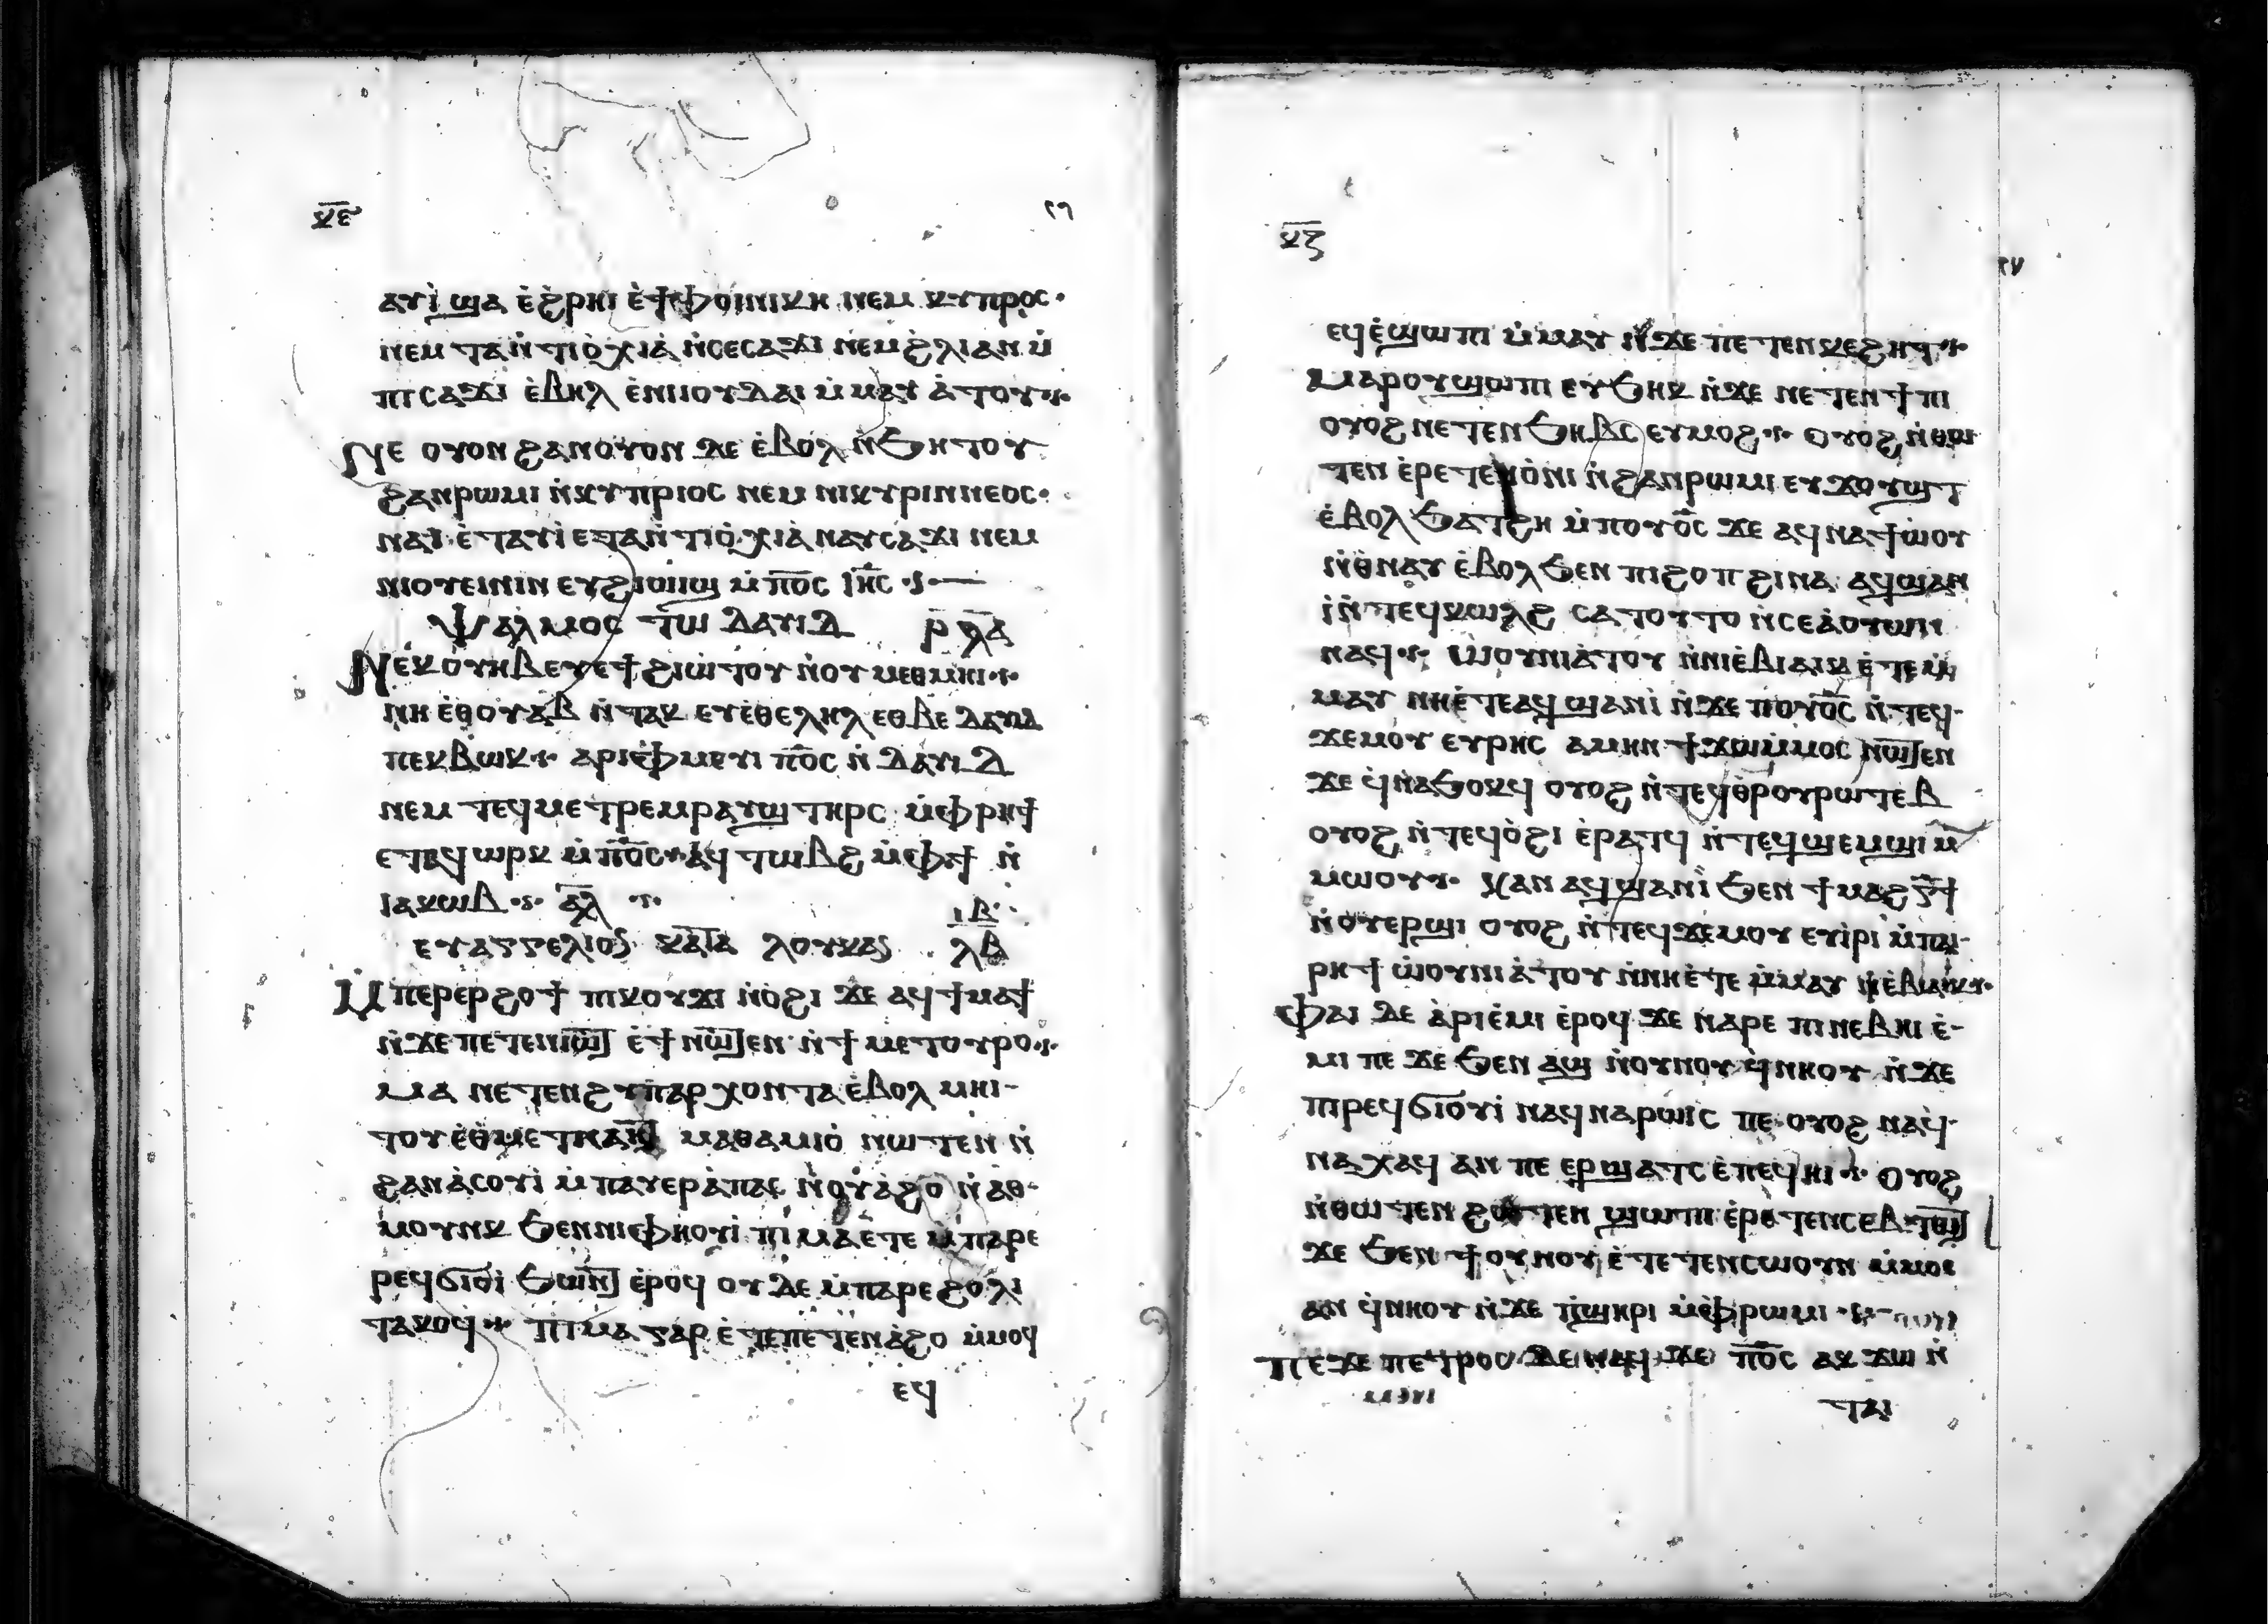 ⲕ̅ⲉ̅
ⲁⲩⲓ̀ ϣⲁ ⲉ̀ϩ̀ⲣⲏⲓ ⲉ̀ϯⲫⲟⲓⲛⲓⲕⲏ ⲛⲉⲙ ⲕⲩⲡⲣⲟⲥ·
ⲛⲉⲙ ⲧⲁⲛ̀ⲧⲓⲟ̀ⲭⲓⲁ̀ ⲛ̀ⲥⲉⲥⲁϫⲓ ⲛⲉⲙ ϩ̀ⲗⲓ ⲁⲛ ⲙ̀
ⲡⲓⲥⲁϫⲓ ⲉ̀ⲃⲏⲗ ⲉ̀ⲛⲓⲓⲟⲩⲇⲁⲓ ⲙ̀ⲙⲁⲩ ⲁ̀ⲧⲟⲩ
ⲛⲉ ⲟⲩⲟⲛ ϩⲁⲛⲟⲩⲟⲛ ⲇⲉ ⲉ̀ⲃⲟⲗ ⲛ̀ϧⲏⲧⲟⲩ
ϩⲁⲛⲣⲱⲙⲓ ⲛ̀ⲕⲩⲡⲣⲓⲟⲥ ⲛⲉⲙ ⲛⲓⲕⲩⲣⲓⲛⲛⲉⲟⲥ·
ⲛⲁⲓ ⲉ̀ⲧⲁⲩⲓ̀ ⲉⲧⲁⲛ̀ⲧⲓⲟ̀ⲭⲓⲁ̀ ⲛⲁⲩⲥⲁϫⲓ ⲛⲉⲙ
ⲛⲓⲟⲩⲉⲓⲛⲓⲛ ⲉⲩϩⲓⲱⲓϣ ⲙ̀ⲡⲟ̅ⲥ̅ ⲓⲏ̅ⲥ̅
ⲯⲁⲗⲙⲟⲥ ⲧⲱ ⲇⲁⲩⲓⲇ ⲣ̅ⲗ̅ⲁ̅
ⲛⲉⲕⲟⲩⲏⲃ ⲉⲩⲉϯϩⲓⲱ̀ⲧⲟⲩ ⲛ̀ⲟⲩⲙⲉⲑⲙⲏⲓ
ⲛⲏ ⲉ̀ⲑⲟⲩⲁⲃ ⲛ̀ⲧⲁⲕ ⲉⲩⲉ̀ⲑⲉⲗⲏⲗ ⲉⲑⲃⲉ ⲇⲁⲩⲓⲇ
ⲡⲉⲕⲃⲱⲕ ⲁⲣⲓⲉ̀ⲫⲙⲉⲩⲓ ⲡⲟ̅ⲥ̅ ⲛ̀ⲇⲁⲩⲓⲇ
ⲛⲉⲙ ⲧⲉϥⲙⲉⲧⲣⲉⲙⲣⲁⲩϣ ⲧⲏⲣⲥ ⲙ̀ⲫⲣⲏϯ
ⲉⲧⲁϥⲱⲣⲕ ⲙ̀ⲡⲟ̅ⲥ̅ ⲁϥⲧⲱⲃϩ ⲙ̀ⲫϯ ⲛ̀
ⲓⲁⲕⲱⲃ ⲁ̅ⲗ̅ ⲓ̅ⲃ̅
ⲉⲩⲁⲅⲅⲉⲗⲓⲟⲥ ⲕⲁⲧⲁ ⲗⲟⲩⲕⲁⲥ ⲗ̅ⲃ̅
ⲙ̀ⲡⲉⲣⲉⲣϩⲟϯ ⲡⲓⲕⲟⲩϫⲓ ⲛ̀ⲟ̀ϩⲓ ϫⲉ ⲁϥϯⲙⲁϯ
ⲛ̀ϫⲉ ⲡⲉⲧⲉⲛⲓⲱ̅ⲧ̅ ⲉ̀ϯ ⲛⲱ̅ⲧ̅ⲉⲛ ⲛ̀ϯⲙⲉⲧⲟⲩⲣⲟ
ⲙⲁ ⲛⲉⲧⲉⲛϩⲩⲡⲁⲣⲭⲟⲛⲧⲁ ⲉ̀ⲃⲟⲗ ⲙⲏⲓ-
ⲧⲟⲩ ⲉ̀ⲑⲙⲉⲧⲛⲁⲏ̅ⲧ̅ ⲙⲁⲑⲁⲙⲓⲟ̀ ⲛⲱⲧⲉⲛ ⲛ̀
ϩⲁⲛⲁ̀ⲥⲟⲩⲓ̀ ⲙ̀ⲡⲁⲩⲉⲣⲁ̀ⲡⲁⲥ ⲛ̀ⲟⲩⲁ̀ϩⲟ ⲛ̀ⲁⲑ-
ⲙⲟⲩⲛⲕ ϧⲉⲛⲛⲓⲫⲏⲟⲩⲓ̀ ⲡⲓⲙⲁ ⲉ̀ⲧⲉ ⲙ̀ⲡⲁⲣⲉ
ⲣⲉϥϭⲓⲟⲓ̀ ϧⲱⲛ̅ⲧ̅ ⲉ̀ⲣⲟϥ ⲟⲩⲇⲉ ⲙ̀ⲡⲁⲣⲉ ϩⲟⲗⲓ
ⲧⲁⲕⲟϥ ⲡⲓⲙⲁ ⲅⲁⲣ ⲉ̀ⲧⲉⲡⲉⲧⲉⲛⲁ̀ϩⲟ ⲙ̀ⲙⲟϥ
ⲉϥ
ⲕ̅ⲋ̅
ⲉϥⲉ̀ϣⲱⲡⲓ ⲙ̀ⲙⲁⲩ ⲛ̀ϫⲉ ⲡⲉⲧⲉⲛⲕⲉϩⲏⲧ
ⲙⲁⲣⲟⲩϣⲱⲡⲓ ⲉⲩϧⲏⲕ ⲛ̀ϫⲉ ⲛⲉⲧⲉⲛϯⲡⲓ
ⲟⲩⲟϩ ⲛⲉⲧⲉⲛϧⲏⲃⲥ ⲉⲩⲙⲟϩ ⲟⲩⲟϩ ⲛ̀ⲑⲱ
ⲧⲉⲛ ⲉ̀ⲣⲉⲧⲉⲛⲟ̀ⲛⲓ ⲛ̀ϩⲁⲛⲣⲱⲙⲓ ⲉⲩϫⲟⲩϣⲧ
ⲉ̀ⲃⲟⲗ ϧⲁⲧϩⲏ ⲙ̀ⲡⲟⲩⲟ̅ⲥ̅ ϫⲉ ⲁϥⲛⲁϯⲱ̀ⲟⲩ
ⲛ̀ⲑⲛⲁⲩ ⲉ̀ⲃⲟⲗ ϧⲉⲛ ⲡⲓϩⲟⲡ ϩⲓⲛⲁ ⲁϥϣⲁⲛ
ⲓ̀ ⲛ̀ⲧⲉϥⲕⲱⲗϩ ⲥⲁⲧⲟⲩⲧⲟ ⲛ̀ⲥⲉⲁ̀ⲟⲩⲱⲛ
ⲛⲁϥ ⲱ̀ⲟⲩⲛⲓⲁ̀ⲧⲟⲩ ⲛ̀ⲛⲓⲉ̀ⲃⲓⲁⲓⲕ ⲉ̀ⲧⲉⲙ̀
ⲙⲁⲩ ⲛⲏ ⲉ̀ⲧⲉⲁϥϣⲁⲛⲓ̀ ⲛ̀ϫⲉ ⲡⲟⲩⲟ̅ⲥ̅ ⲛ̀ⲧⲉϥ-
ϫⲉⲙⲟⲩ ⲉⲩⲣⲏⲥ ⲁⲙⲏⲛ ϯϫⲱⲙ̀ⲙⲟⲥ ⲛⲱ̅ⲧ̅ⲉⲛ
ϫⲉ ϥ̀ⲛⲁϧⲟⲕϥ ⲟⲩⲟϩ ⲛ̀ⲧⲉϥⲑ̀ⲣⲟⲩⲣⲱⲧⲉⲃ
ⲟⲩⲟϩ ⲛ̀ⲧⲉϥⲟ̀ϩⲓ ⲉ̀ⲣⲁⲧϥ ⲛ̀ⲧⲉϥϣⲉⲙϣⲓ ⲙ̀
ⲙⲱⲟⲩ ⲕⲁⲛ ⲁϥϣⲁⲛⲓ̀ ϧⲉⲛ ϯⲙⲁϩⲅ̅ϯ
ⲛ̀ⲟⲩⲉⲣϣⲓ ⲟⲩⲟϩ ⲛ̀ⲧⲉϥϫⲉⲙⲟⲩ ⲉⲩⲓ̀ⲣⲓ ⲙ̀ⲡⲁⲓ-
ⲣⲏϯ ⲱ̀ⲟⲩⲛⲓⲁ̀ⲧⲟⲩ ⲛ̀ⲛⲏⲉ̀ⲧⲉ ⲙ̀ⲙⲁⲩ ⲛ̀ⲉ̀ⲃⲓⲁⲓⲕ
ⲫⲁⲓ ⲇⲉ ⲁ̀ⲣⲓⲉ̀ⲙⲓ ⲉ̀ⲣⲟϥ ϫⲉ ⲛⲁⲣⲉ ⲡⲓⲛⲉⲃⲏⲓ ⲉ̀-
ⲙⲓ ⲡⲉ ϫⲉ ϧⲉⲛ ⲁϣ ⲛ̀ⲟⲩⲛⲟⲩ ϥ̀ⲛⲏⲟⲩ ⲛ̀ϫⲉ
ⲡⲓⲣⲉϥϭⲓⲟⲩⲓ̀ ⲛⲁϥⲛⲁⲣⲱⲓⲥ ⲡⲉ ⲟⲩⲟϩ ⲛⲁϥ-
ⲛⲁⲭⲁϥ ⲁⲛ ⲡⲉ ⲉⲣϣⲁⲧⲥ ⲉ̀ⲡⲉϥⲏⲓ ⲟⲩⲟϩ
ⲛ̀ⲑⲱⲧⲉⲛ ϩⲱⲧⲉⲛ ϣⲱⲡⲓ ⲉ̀ⲣⲉⲧⲉⲛⲥⲉⲃⲧⲱ̅ⲧ̅
ϫⲉ ϧⲉⲛ ϯⲟⲩⲛⲟⲩ ⲉ̀ⲧⲉⲧⲉⲛⲥⲱⲟⲩⲛ ⲙ̀ⲙⲟⲥ
ⲁⲛ ϥ̀ⲛⲏⲟⲩ ⲛ̀ϫⲉ ⲡ̀ϣⲏⲣⲓ ⲙ̀ⲫⲣⲱⲙⲓ
ⲡⲉϫⲉ ⲡⲉⲧⲣⲟⲥ ⲇⲉ ⲛⲁϥ ϫⲉ ⲡⲟ̅ⲥ̅ ⲁⲕϫⲱ ⲛ̀
ⲧⲁⲓ